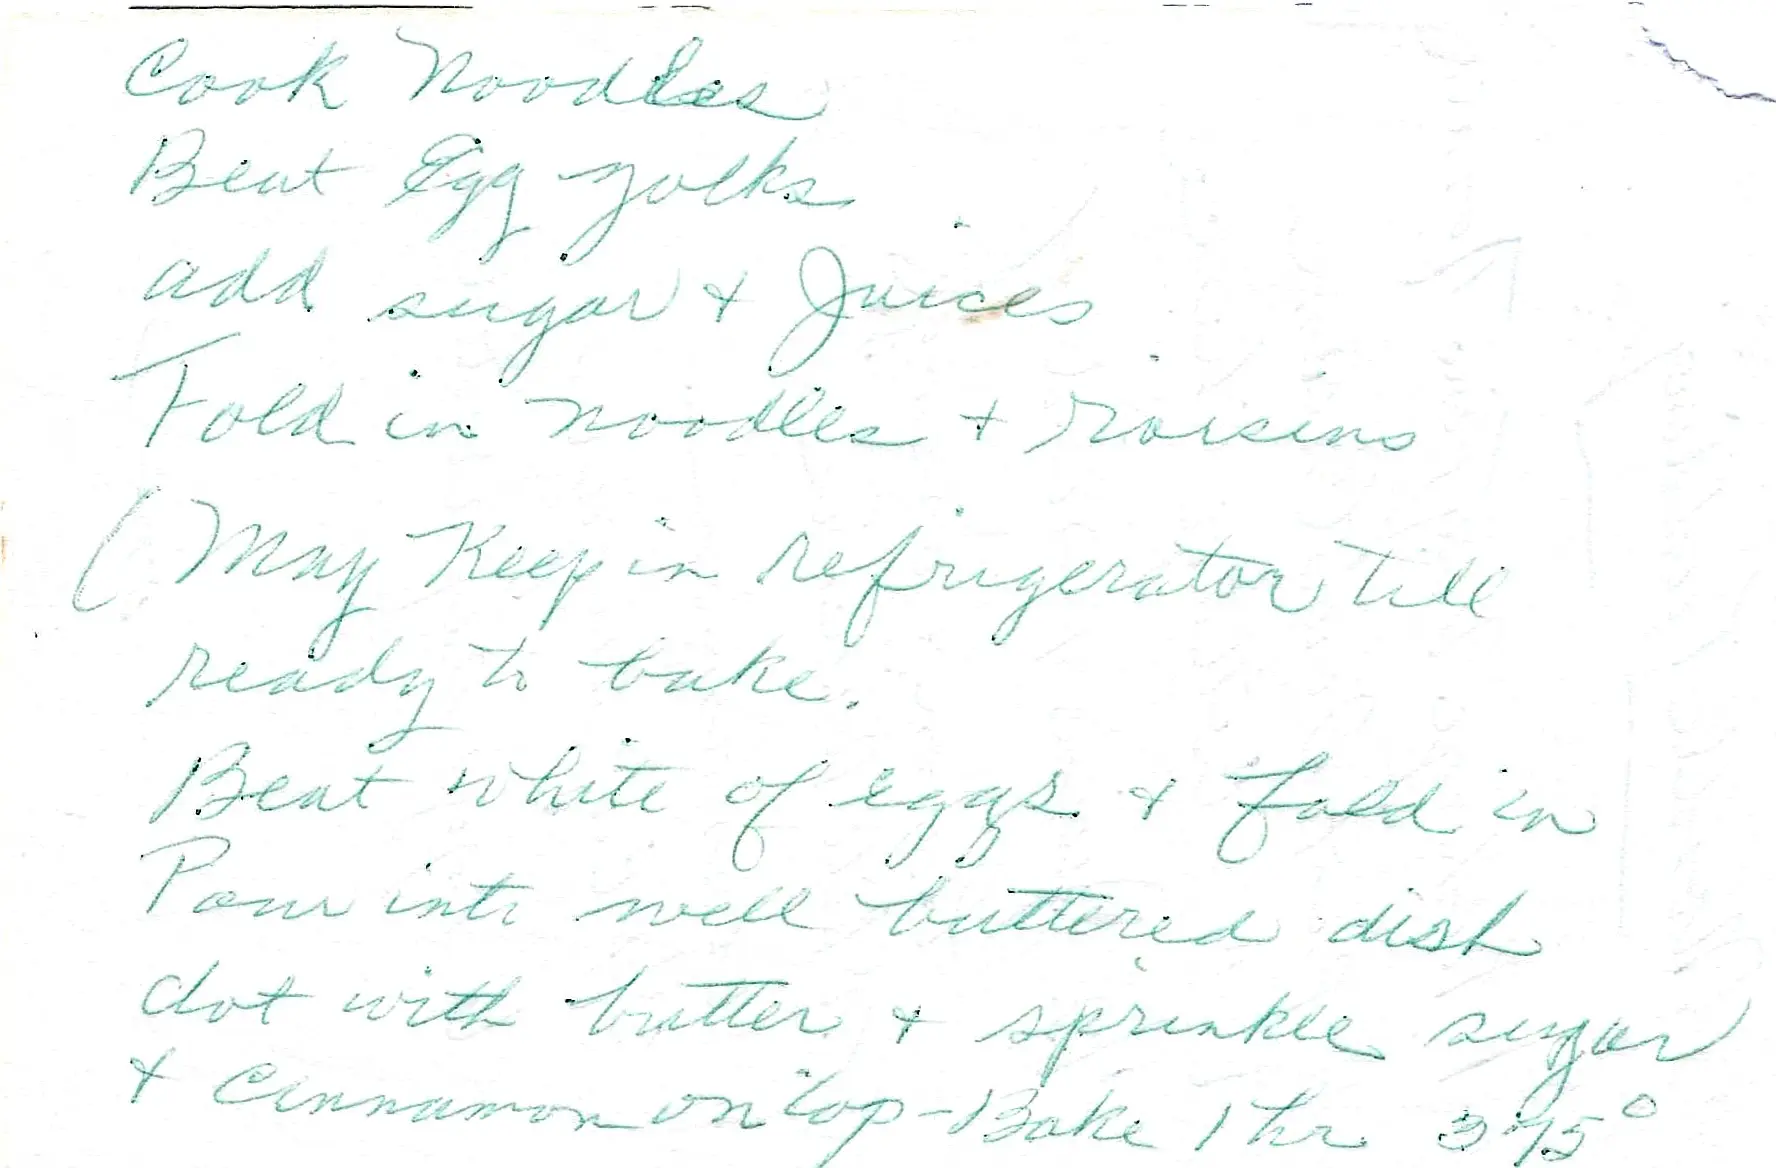 Cook Noodles
Beat Egg yolks
add sugar + Juices
Fold in noodles + raisins
(May Keep in refrigerator till
ready to bake.
Beat white of eggs + fold in
Pour into well buttered dish
dot with butter + sprinkle sugar
+ Cinnamon on top - Bake 1 hr 375°